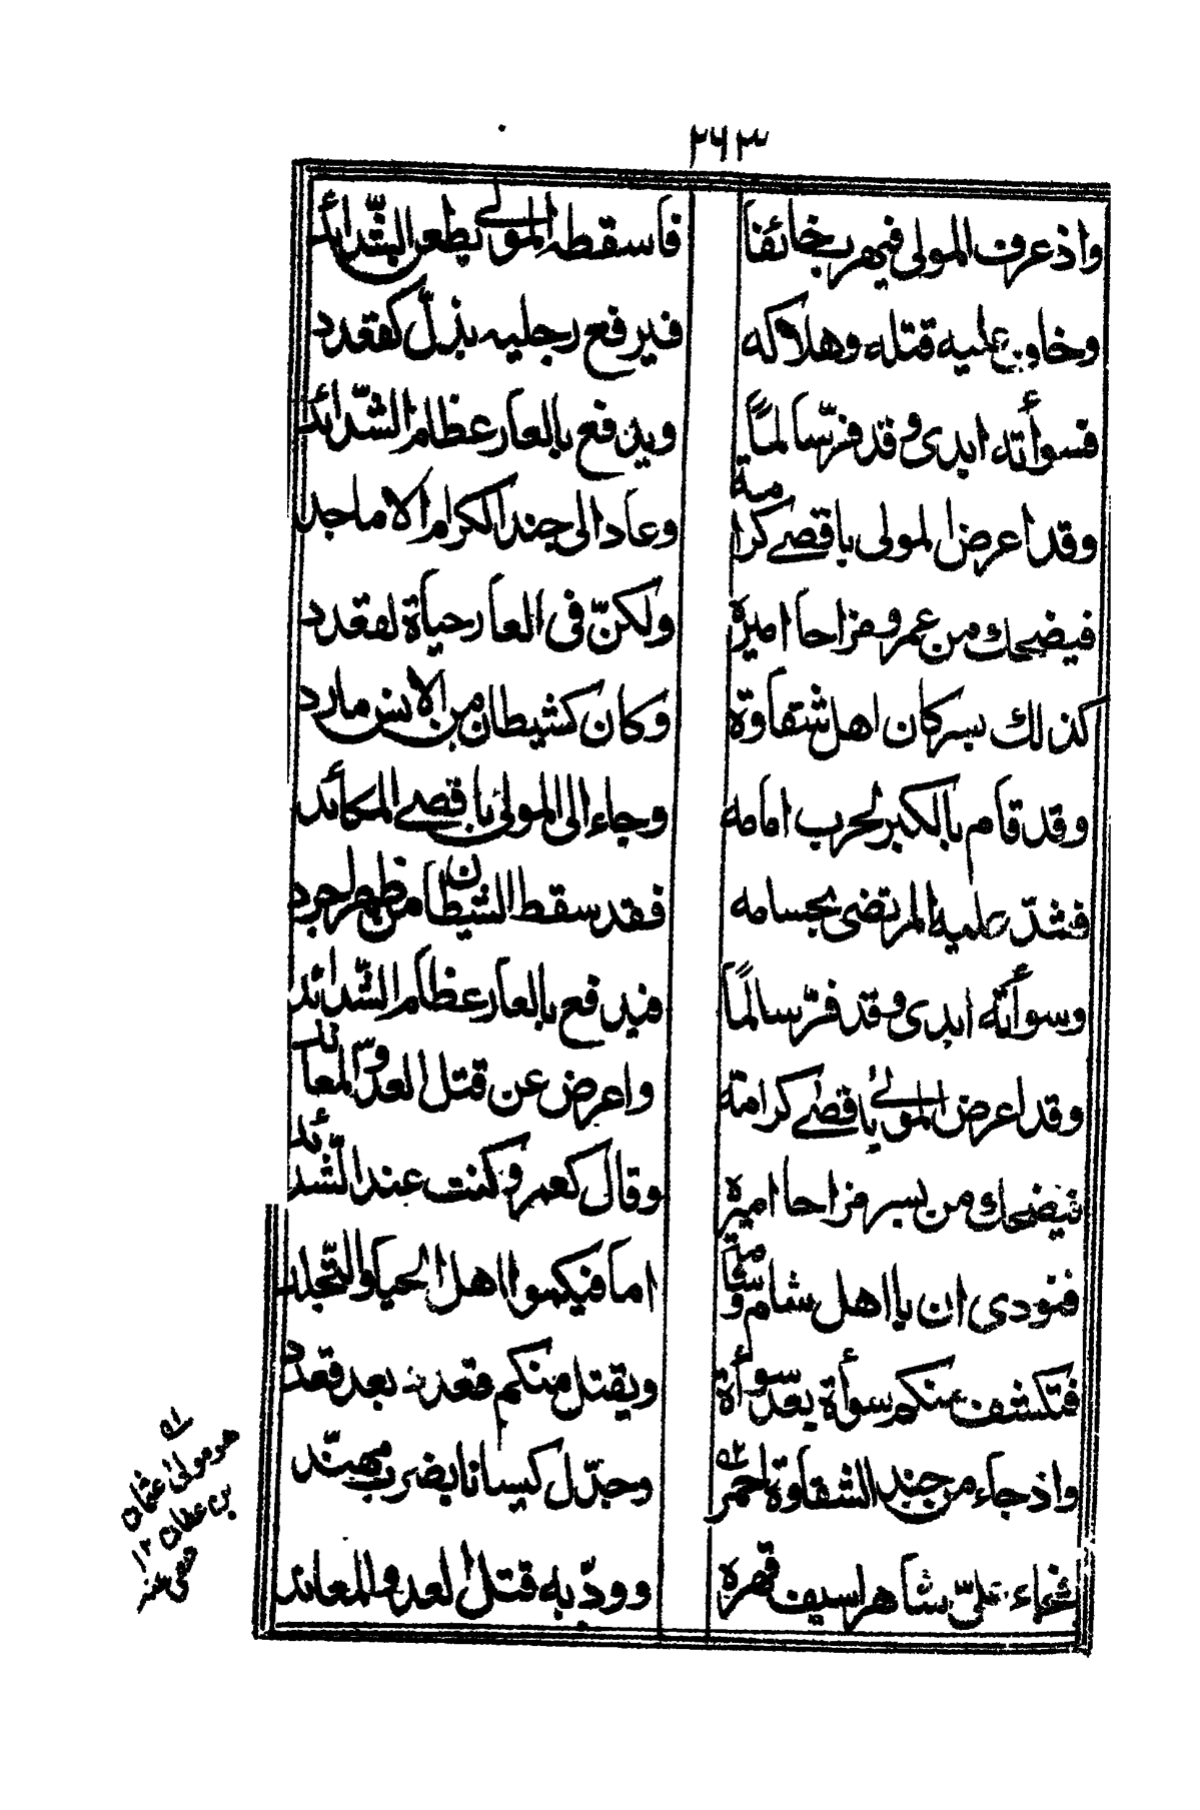 ٢٦٣
واذ عرف المولى فيهرب خائفا فاسقطه المولى بطعن الشّدائد
وخاوع عليه قتله وهلاكه فيرفع رجليه بذلّ كقعدد
فسوأته ابدى وقد فرّ سالمًا ويدفع بالعار عظام الشّدائد
وقد اعرض المولى باقصى كرامة وعاد الى جند الكرام الاماجد
فيضحك من عمرو مزاحا اميرة ولكنّ فى العار حياة لقعدد
كذالك بسر كان اهل شقاوة وكان كشيطان من الانس مارد
وقد قام بالكبر لحرب امامه وجاء الى المولى باقصى المكائد
فشدّ عليه المرتضى بحسامه فقد سقط الشيطان من ظهر اجرد
وسوأته ابدى وقد فرّ سالمًا فيدفع بالعار عظام الشّدائد
وقد اعرض المولى باقصى كرامة واعرض عن قتل العدوّ المعاند
فيضحك من بسر مزاحا اميرة وقال كعمرو كنت عند الشّدائد
فنودى ان يا اهل شام وشامة اما فيكموا اهل الحيا والتّجلد
فتكشف منكم سوأة بعد سوأة ويقتل منكم قعدد بعد قعدد
واذ جاء من جند الشقاوة احمر ٥٢ وجدّل كيسانا بضرب مهنّد
فجاء علىّ شاهرا سيف قهرة وودّ به قتل العدو المعاند
٥٢
هو مولى عثمان
بن عفان ١٢
عفى عنه